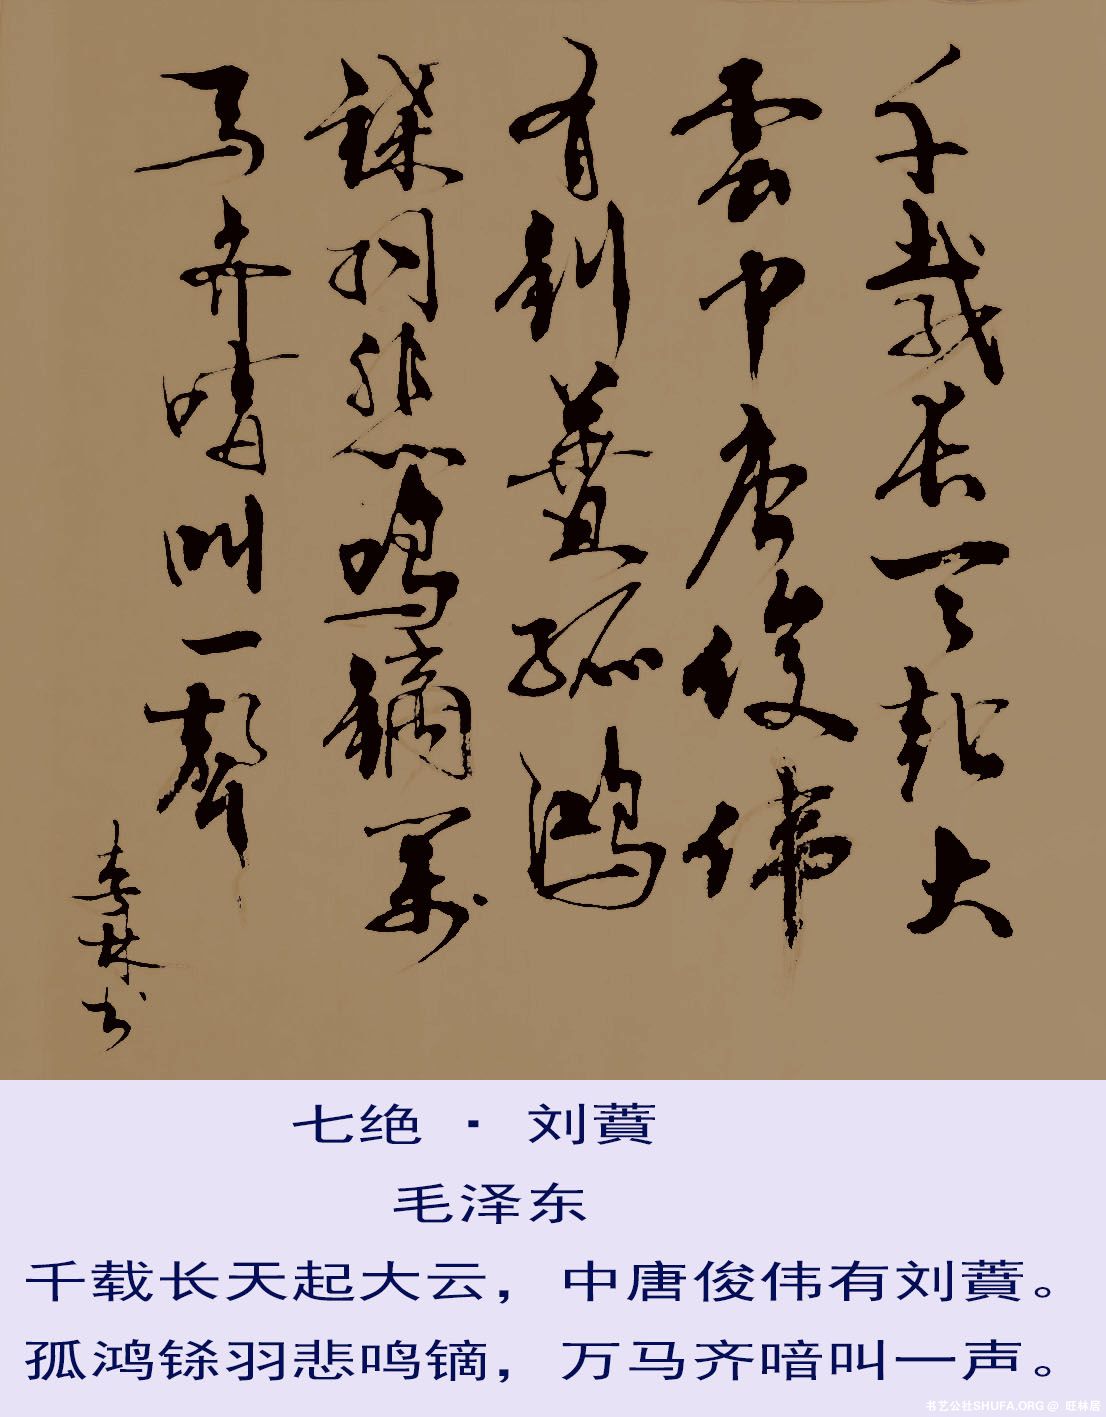 千載長天起大
雲中唐俊偉
有劉蕡孤鴻
鎩羽悲鳴鏑萬
马齐喑叫一聲
林书
七绝 · 刘蕡
毛泽东
千载长天起大云，中唐俊伟有刘蕡。
孤鸿铩羽悲鸣镝，万马齐喑叫一声。
书艺公社SHUFA.ORG @ 旺林居